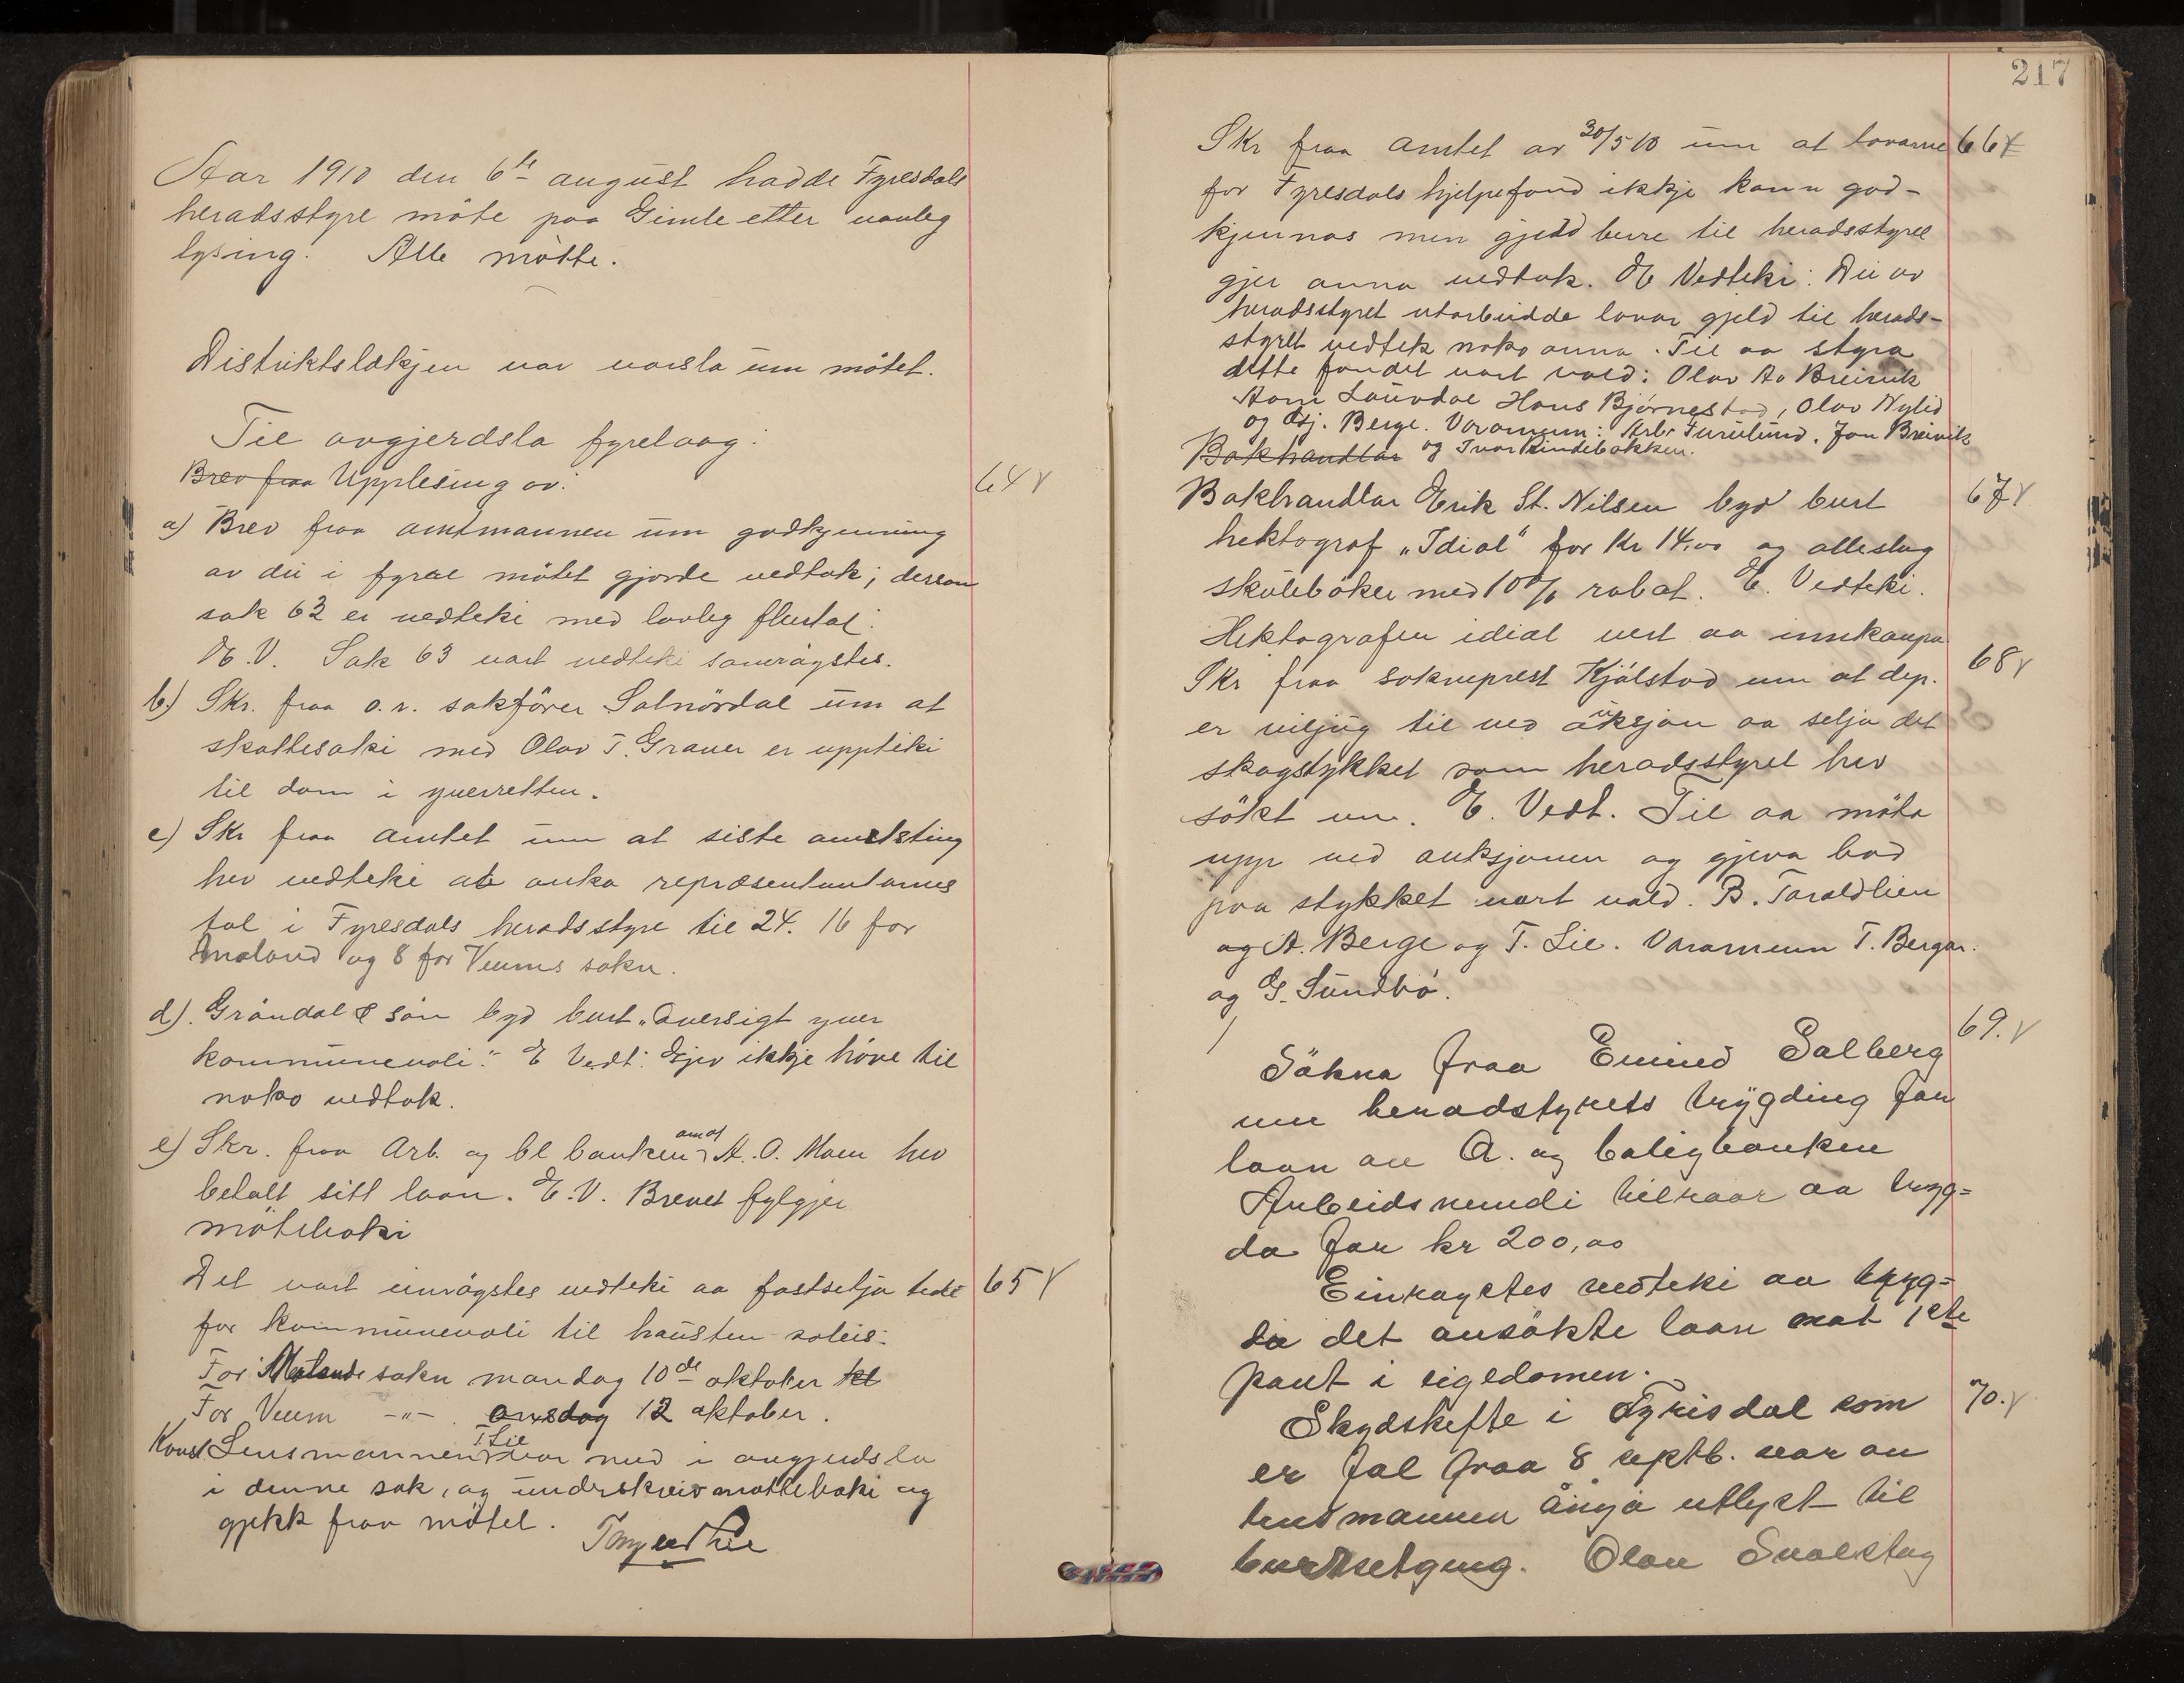 Aar 1910 den 6te august hadde Fyresdals
heradsstyre möte paa Gimle etter vanleg
lysing. Alle mötte.
Distriktslækjen var varsla um mötet.
Til avgjerdsla fyrelaag:
Brev fraa Upplesing av: 64
a) Brev fraa amtmannen um godkjenning
av dei i fyrre mötet gjorde vedtak; dersom
sak 62 er vedteki med lovleg flertal.
H.V. Sak 63 vart vedteki samröystes.
b.) Skr. fraa o.r. sakförer Solnördal um at
skattesaki med Olav T. Graver er uppteki
til dom i yverretten.
c) Skr fraa amtet um at siste amtsting
hev vedteki at auka repræsentantarnes
tal i Fyresdals heradsstyre til 24. 16 for
Moland og 8 for Veums sokn.
d). Gröndal & sön byd burt "Oversigt yver
kommunevali." H Vedt: Gjev ikkje höve til
noko vedtak.
e) Skr. fraa Arb. og bl banken amot A. O. Moen hev
betalt sitt laan. H.V. Brevet fylgjer
möteboki
Det vart einröystes vedteki aa fastsetja tidi 65
for kommunevali til hausten soleis:
For Molands sokn mandag 10de oktober kl
For Veum -"- . onsdag 12 oktober.
Konst. Lensmannen T Lie var med i avgjerdsla
i denne sak, og underskreiv motteboki og
gjekk fraa mötet.
217
Skr fraa amtet av 30/5 10 um at lovarne 66
for Fyresdals hjelpefond ikkje kann god-
kjennas men gjeld berre til heradsstyret
gjer anna vedtak. H Vedteki: Dei av
heradsstyret utarbeidde lovar gjeld til herads-
styret vedtek noko anna. Til aa styra
dette fondet vart vald: Olav A. Breivik
Aani Lauvdal Hans Björnestad, Olav Nylid
og Gj. Berge. Varamenn: Furulund. Jon Breivik
Bokhandlar og Ivar Rindebakken.
Bokhandlar Erik St. Nilsen byd burt 67
hektograf "Idial" for Kr 14,00 og alleslag
skuleböker med 10% rabat. H. Vedteki.
Hektografen idial vert aa innkaupa
Skr fraa sokneprest Kjölstad um at dep. 68
er viljug til ved auksjon aa selja det
skogstykket som heradsstyret hev
sökt um. H. Vedt. Til aa möta
upp ved auksjonen og gjeva bod
paa stykket vart vald. B. Taraldlien
og A. Berge og T. Lie. Varamenn T. Bergan.
og G. Sundbö.
Sökna fraa Eivind Solberg 69.
um heradstyrets trygding for
laan av A. og boligbanken
Arbeidsnemdi tilraar aa tryg=
da for kr 200,00
Einröystes vedteki aa tryg=
da det ansökte laan mot 1ste
pant i eigedomen.
Skydskefte i Fyrisdal som 70.
er fal fraa 8 septb. var av
lensmannen Ånya utlyst til
burtsetjing. Olav Svalestog